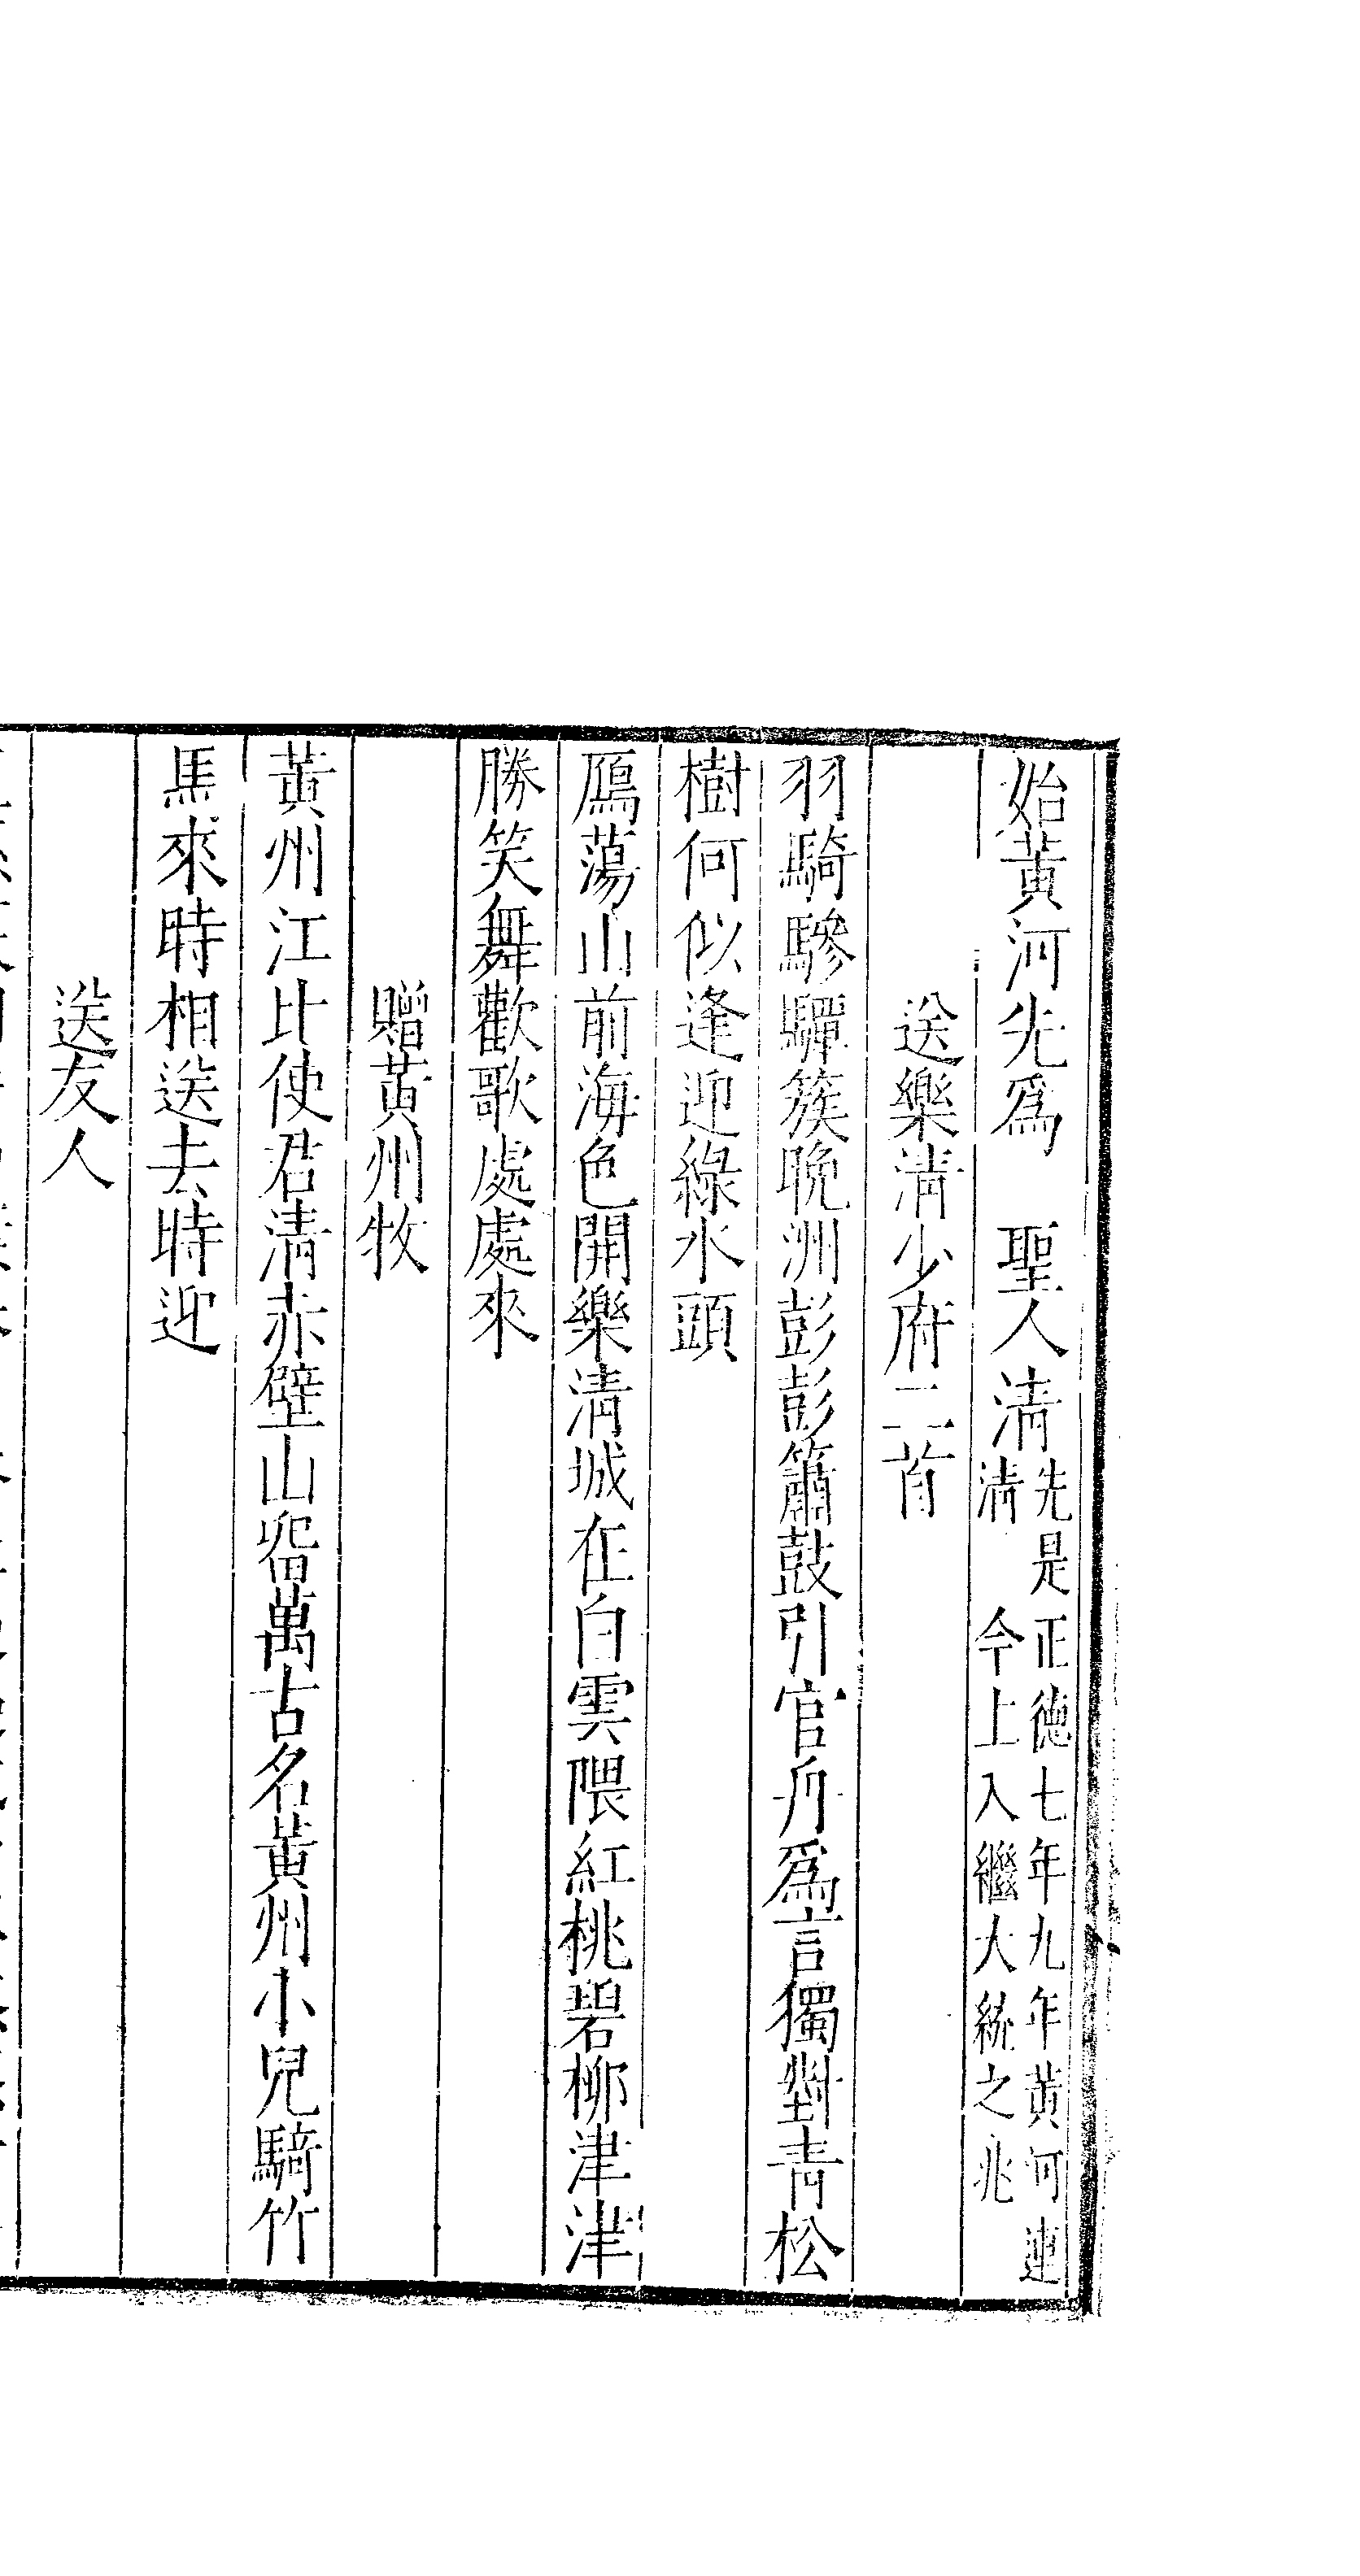 始黃河先爲　聖人淸先是正德七年九年黃河連淸　今上入繼大統之兆
送樂淸少府二首
羽騎驂驔簇晩洲彭彭簫鼓引官舟爲言獨對青松
樹何似逢迎綠水頭
鴈蕩山前海色開樂淸城在白雲隈紅桃碧柳津津
勝笑舞歡歌處處來
贈黃州牧
黃州江比使君淸赤壁山留萬古名黃州小兒騎竹
馬來時相送去時迎
送友人